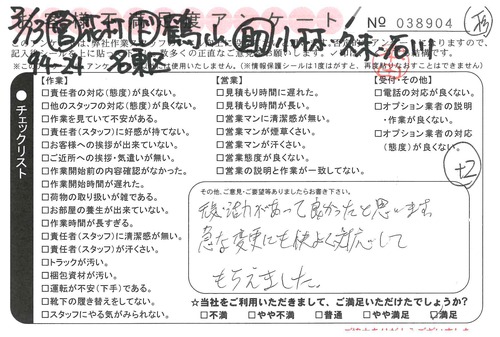 アンケート
№ 038904
3/13 営 志村 作 鶴 助 小林 石川
94-24 名東区
チェックリスト
【作業】
□責任者の対応(態度)が良くない。
□他のスタッフの対応(態度)が良くない。
□作業を見ていて不安がある。
□責任者(スタッフ)に好感が持てない。
□お客様への挨拶が出来ていない。
□ご近所への挨拶・気遣いが無い。
□作業開始前の内容確認がなかった。
□作業開始時間が遅れた。
□荷物の取り扱いが雑である。
□お部屋の養生が出来ていない。
□作業時間が長すぎる。
□責任者(スタッフ)に清潔感が無い。
□責任者(スタッフ)が汗くさい。
□トラックが汚い。
□梱包資材が汚い。
□運転が不安(下手)である。
□靴下の履き替えをしてない。
□スタッフにやる気がみられない。
【営業】
□見積もり時間に遅れた。
□見積もり時間が長い。
□営業マンに清潔感が無い。
□営業マンが煙草くさい。
□営業マンが汗くさい。
□営業態度が良くない。
□営業の説明と作業が一致してない。
【受付・その他】
□電話の対応が良くない。
□オプション業者の説明
・作業が良くない。
□オプション業者の対応
(態度)が良くない。
+2
その他、ご意見・ご要望等ありましたらお書き下さい。
活力があって良かったと思います。
急な変更にも快よく対応して
もらえました。
☆当社をご利用いただきまして、ご満足いただけてでしょうか?
□不満 □やや不満 □普通 □やや満足 □満足